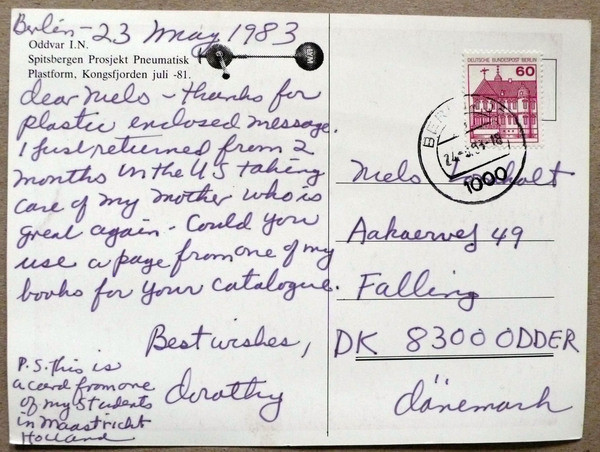 Berlin - 23 May 1983
Oddvar I.N.
Spitsbergen Prosjekt Pneumatisk
Plastform, Kongsfjorden juli -81.
dear Niels - thanks for
plastic enclosed message.
I just returned from 2
months in the US taking
care of my mother who is
great again - Could you
use a page from one of my
books for your catalogue.
Best wishes,
dorothy
P.S. this is
a card from one
of my students
in Maastricht
Holland
DEUTSCHE BUNDESPOST BERLIN
60
1000
Niels
Aakaervej 49
Falling
DK 8300 ODDER
dänemark